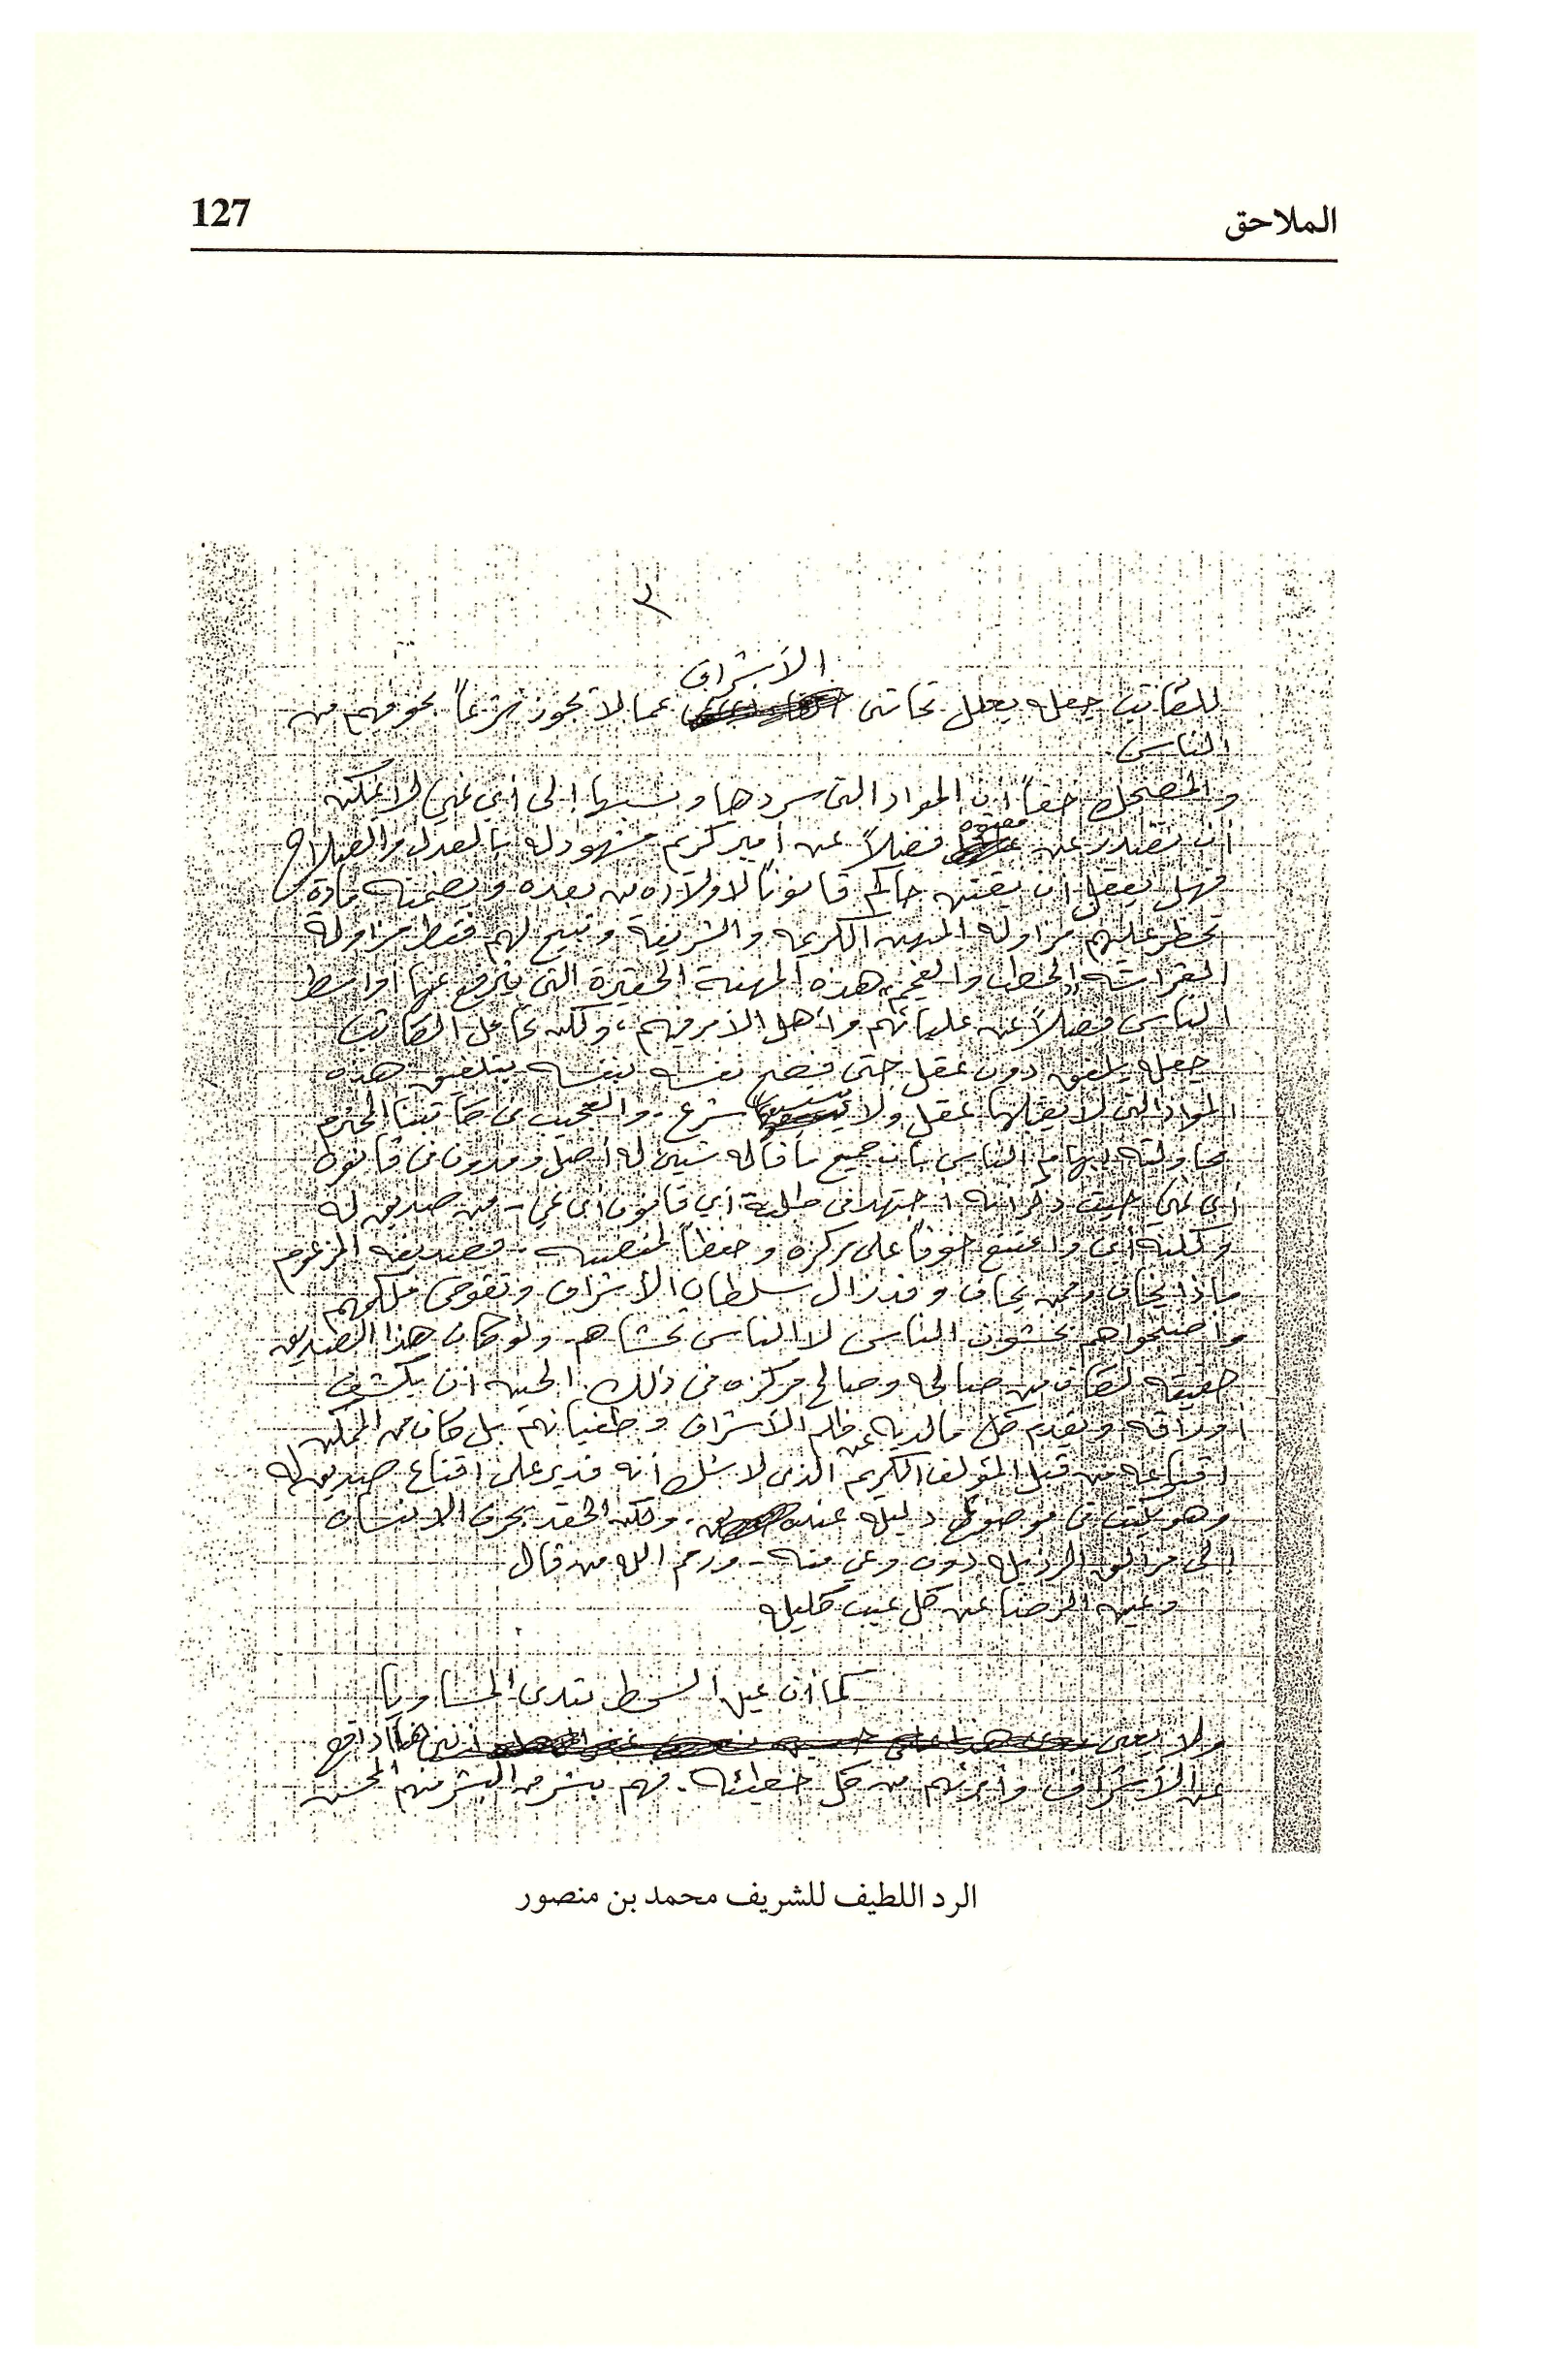 الملاحق
127
٣
الأشراف
للكاتب جعله يعلل تحاشي عما لا تجوز شرعاً بخوفهم من
الناس.
والمضحك حقاً ان المواد التي سردها ونسبها إلى أبي نمي لا يمكن
معتوه
أن تصدر عن فضلاً عن أمير كريم مشهود له بالعدل والصلاح
فهل يعقل أن يقنن حاكم قانوناً لاولاده من بعده ويضمنه مادة
تحظر عليهم مزاولة المهن الكريمة والشريفة وتبيح لهم فقط مزاولة
الحطب والفحم، هذه المهنة الحقيرة التي يترفع عنها أواسط
الناس فضلاً عن عليائهم وأهل الأمر فيهم، ولكن تحامل الكاتب
جعله يلفق دون عقل حتى فضح نفسه بنفسه بتلفيق هذه
المواد التي لا يقبلها عقل ولا شرع - والعجيب من كاتبنا المحترم
محاولته إيهام الناس بأن جميع ما قاله شيئ له أصل ومدون في قانون
أبي نمي حيث ذكر انه اجتهد في طلبه أي قانون أبي نمي - من صديق له
ولكنه أبى وامتنع خوفاً على مركزه وحفظاً لمنصبه - فصديقه المزعوم
ماذا يخاف وممن يخاف وقد زال سلطان الأشراف وتقوض ملكهم
وأصبحوا هم يخشون الناس لا الناس تخشاهم - ولو كان هذا الصديق
حقيقه لكان من صالحه وصالح مركزه في ذلك الحين أن يكشف
أوراقه ويقدم كل ما لديه عن ظلم الأشراف وطغيانهم بل كان من الممكن
اقناعه من قبل المؤلف الكريم الذي لا شك أنه قدير على اقناع صديق له
وهو يكتب في موضوع دليله عند . ولكن الحقد يجرف الانسان
الى مزالق الرذيلة دون وعي منه - ورحم الله من قال
وعين الرضا عن كل عيب كليلة
كما أن عين السخط تبدى المساويا
ولا يعني أنني هنا أدافع
عن الأشراف وأبرئهم من كل خطيئة . فهم بشر من البشر منهم المحسن
الرد اللطيف للشريف محمد بن منصور